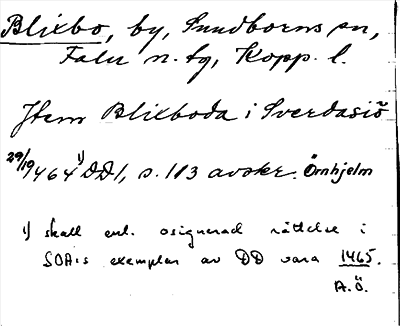 Blixbo, by, Sundborns sn,
Falu n. tg, Kopp. l.
Jtem Blixboda i Sverdasiö
29/19 1464 1) DD 1, s. 113 avskr. Örnhjelm
1) skall enl. osignerad rättelse i
SOA:s exemplar av DD vara 1465.
A.Ö.